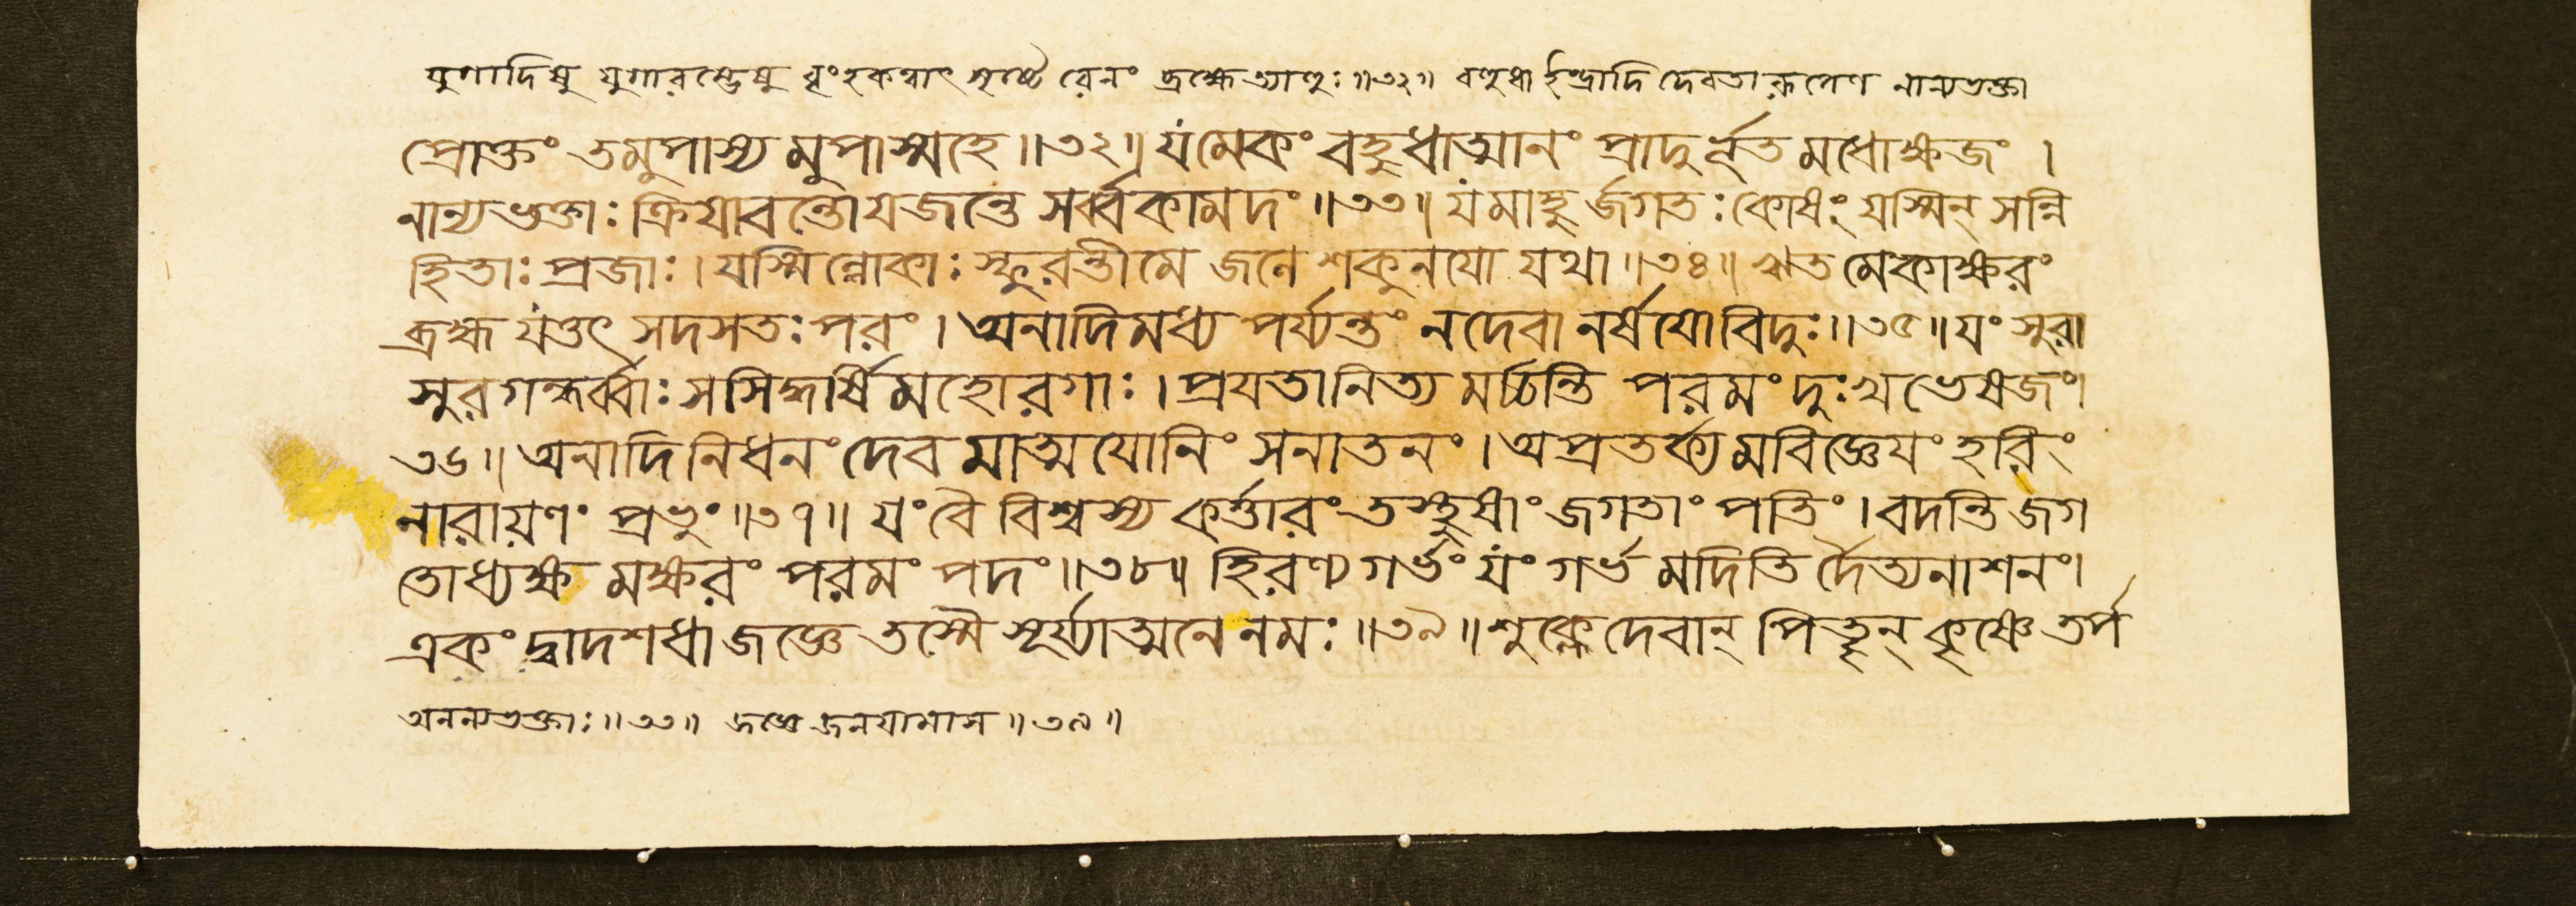 যুগাদিষু যুগারম্ভেষু বৃংহকত্বাৎ সৃষ্টে ব্রহ্মেত্যাহুঃ॥৩২॥ বহুধা ইন্দ্রাদি দেবতারূপেণ নান্যভক্তা
প্রোক্তং তমুপাস্য মুপাস্মহে॥৩২॥ যমেকং বহুধাত্মানং প্রাদুর্ভূত মধোক্ষজং।
নান্যভক্তাঃ ক্রিয়াবন্তোযজন্তে সর্ব্বকামদং॥৩৩॥ যমাহু র্জগতঃ কোষং যস্মিন্ সন্নি
হিতাঃ প্রজাঃ। যস্মিল্লোকাঃ স্ফুরন্তীমে জলে শকুনযো যথা॥৩৪॥ ঋত মেকাক্ষরং
ব্রহ্ম যত্তৎ সদসতঃ পরং। অনাদিমধ্য পর্য্যন্তং নদেবা নর্ষযোবিদুঃ॥৩৫॥ যং সুরা
সুরগন্ধর্ব্বাঃ সসিদ্ধর্ষিমহোরগাঃ। প্রযতানিত্য মর্চ্চন্তি পরমং দুঃখভেষজং।
৩৬॥ অনাদি নিধনং দেব মাত্মযোনিং সনাতনং। অপ্রতর্ক্যমবিজ্ঞেযং হরিং
নারায়ণং প্রভুং॥৩৭॥ যং বৈ বিশ্বস্য কর্ত্তারং তস্থুষাং জগতাং পতিং। বদন্তি জগ
তোধ্যক্ষ মক্ষরং পরমং পদং॥৩৮॥ হিরণ্য গর্ভং যং গর্ভ মদিতি র্দৈত্যনাশনং।
একং দ্বাদশধা জজ্ঞে তস্মৈ সূর্য্যাত্মনে নমঃ॥৩৯॥ শুক্লে দেবান্ পিতৄন্ কৃষ্ণে তর্প
অনন্যভক্তাঃ॥৩৩॥ জজ্ঞে জনযামাস॥৩৯॥